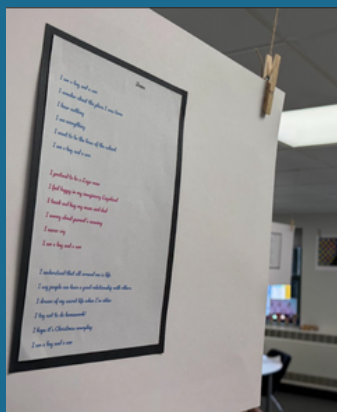 I am a boy and a son
I wonder about the place I was born
I hear nothing
I see everything
I want to be the boss of the school
I am a boy and a son
I pretend to be a Lego man
I feel happy in my imaginary Legoland
I touch and hug my mom and dad
I worry about parent's meeting
I never cry
I am a boy and a son
I understand that all around me is life
I say people can have a great relationship with others
I dream of my secret life when I'm older
I try not to do homework!
I hope it's Christmas everyday
I am a boy and a son